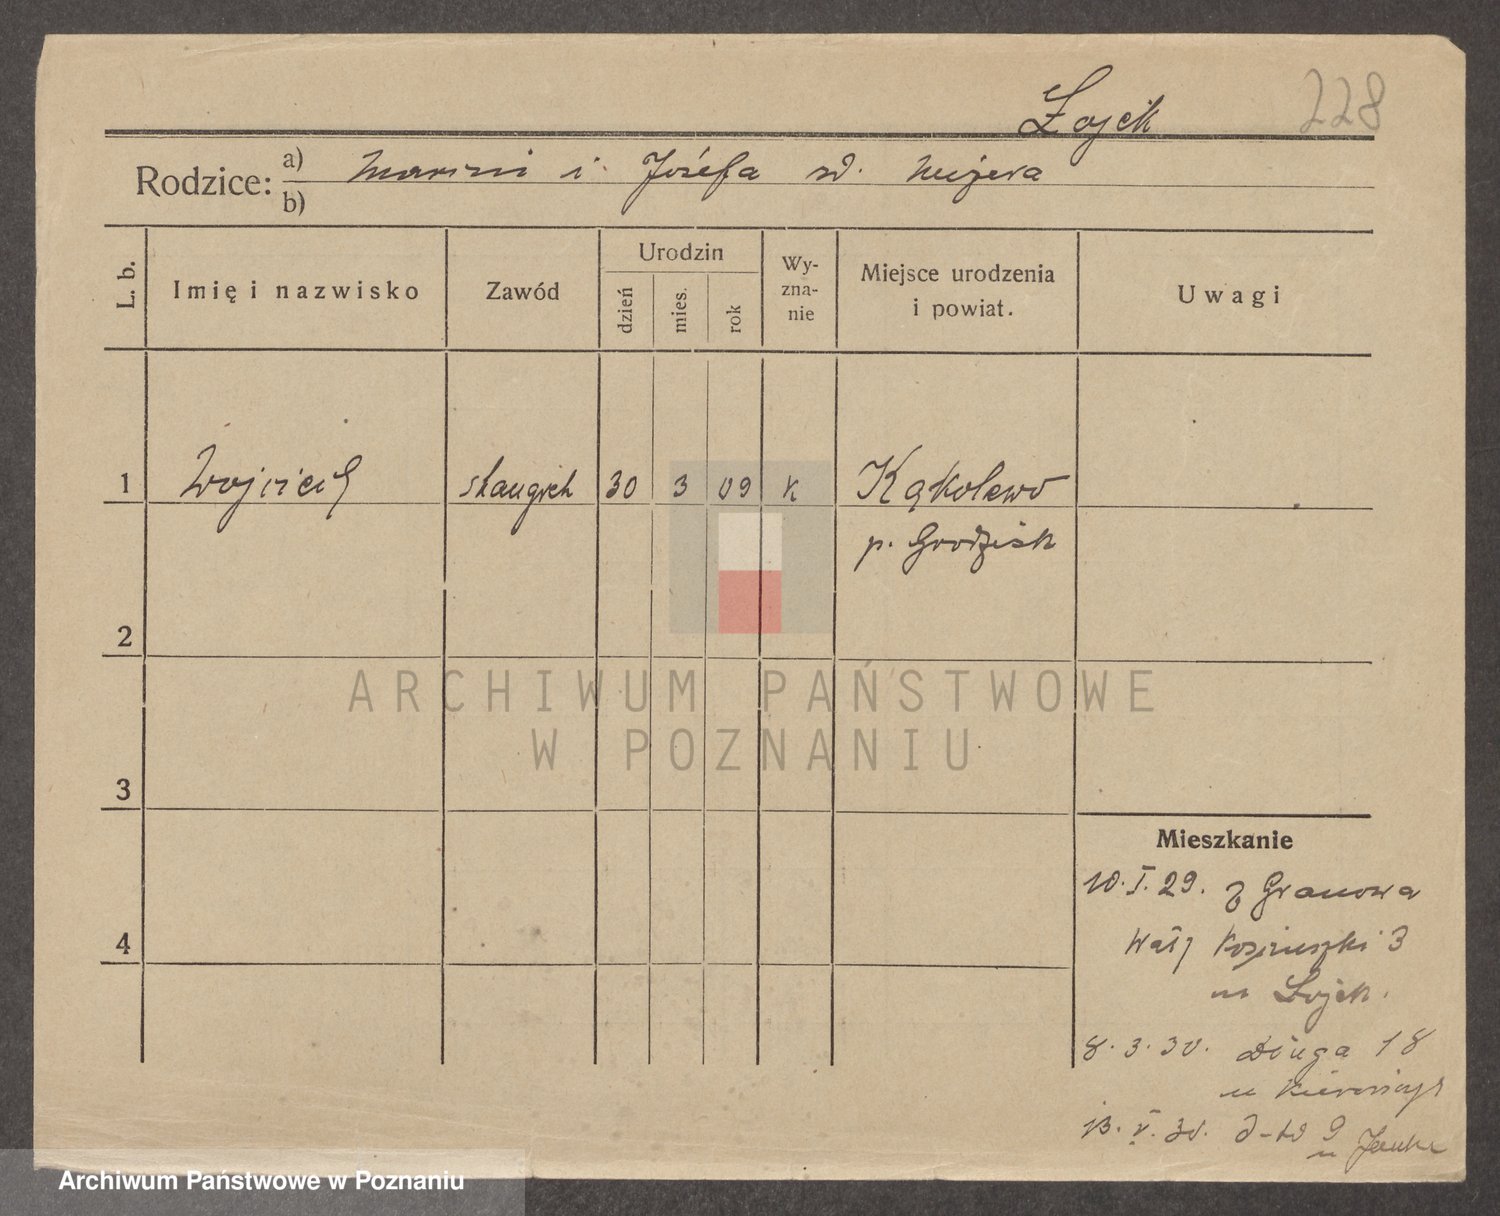 228
Łojek
Rodzice: a) Marcin i Józefa
b)
L. b.
Imię i nazwisko
Zawód
Urodzin
dzień
mies.
rok
Wy-
zna-
nie
Miejsce urodzenia
i powiat.
Uwagi
1 Wojciech 30 3 09 k Kąkolewo
p. Grodzisk
2
3
4
Mieszkanie
10. I. 29. z Granowa
Wały Kościuszki 3
u Łojek.
8. 3. 30. Długa 18
u
13. V. 30. 9
u
ARCHIWUM PAŃSTWOWE
W POZNANIU
Archiwum Państwowe w Poznaniu